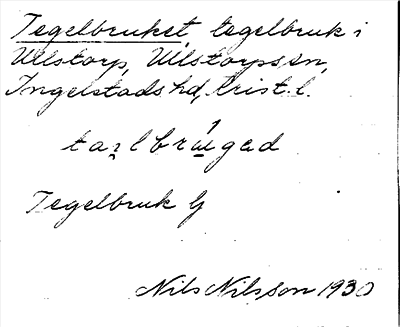 Tegelbruket, tegelbruk i
Ullstorp, Ullstorps sn,
Ingelstads hd, Krist. l.
Tegelbruk
Nils Nilsson 1930